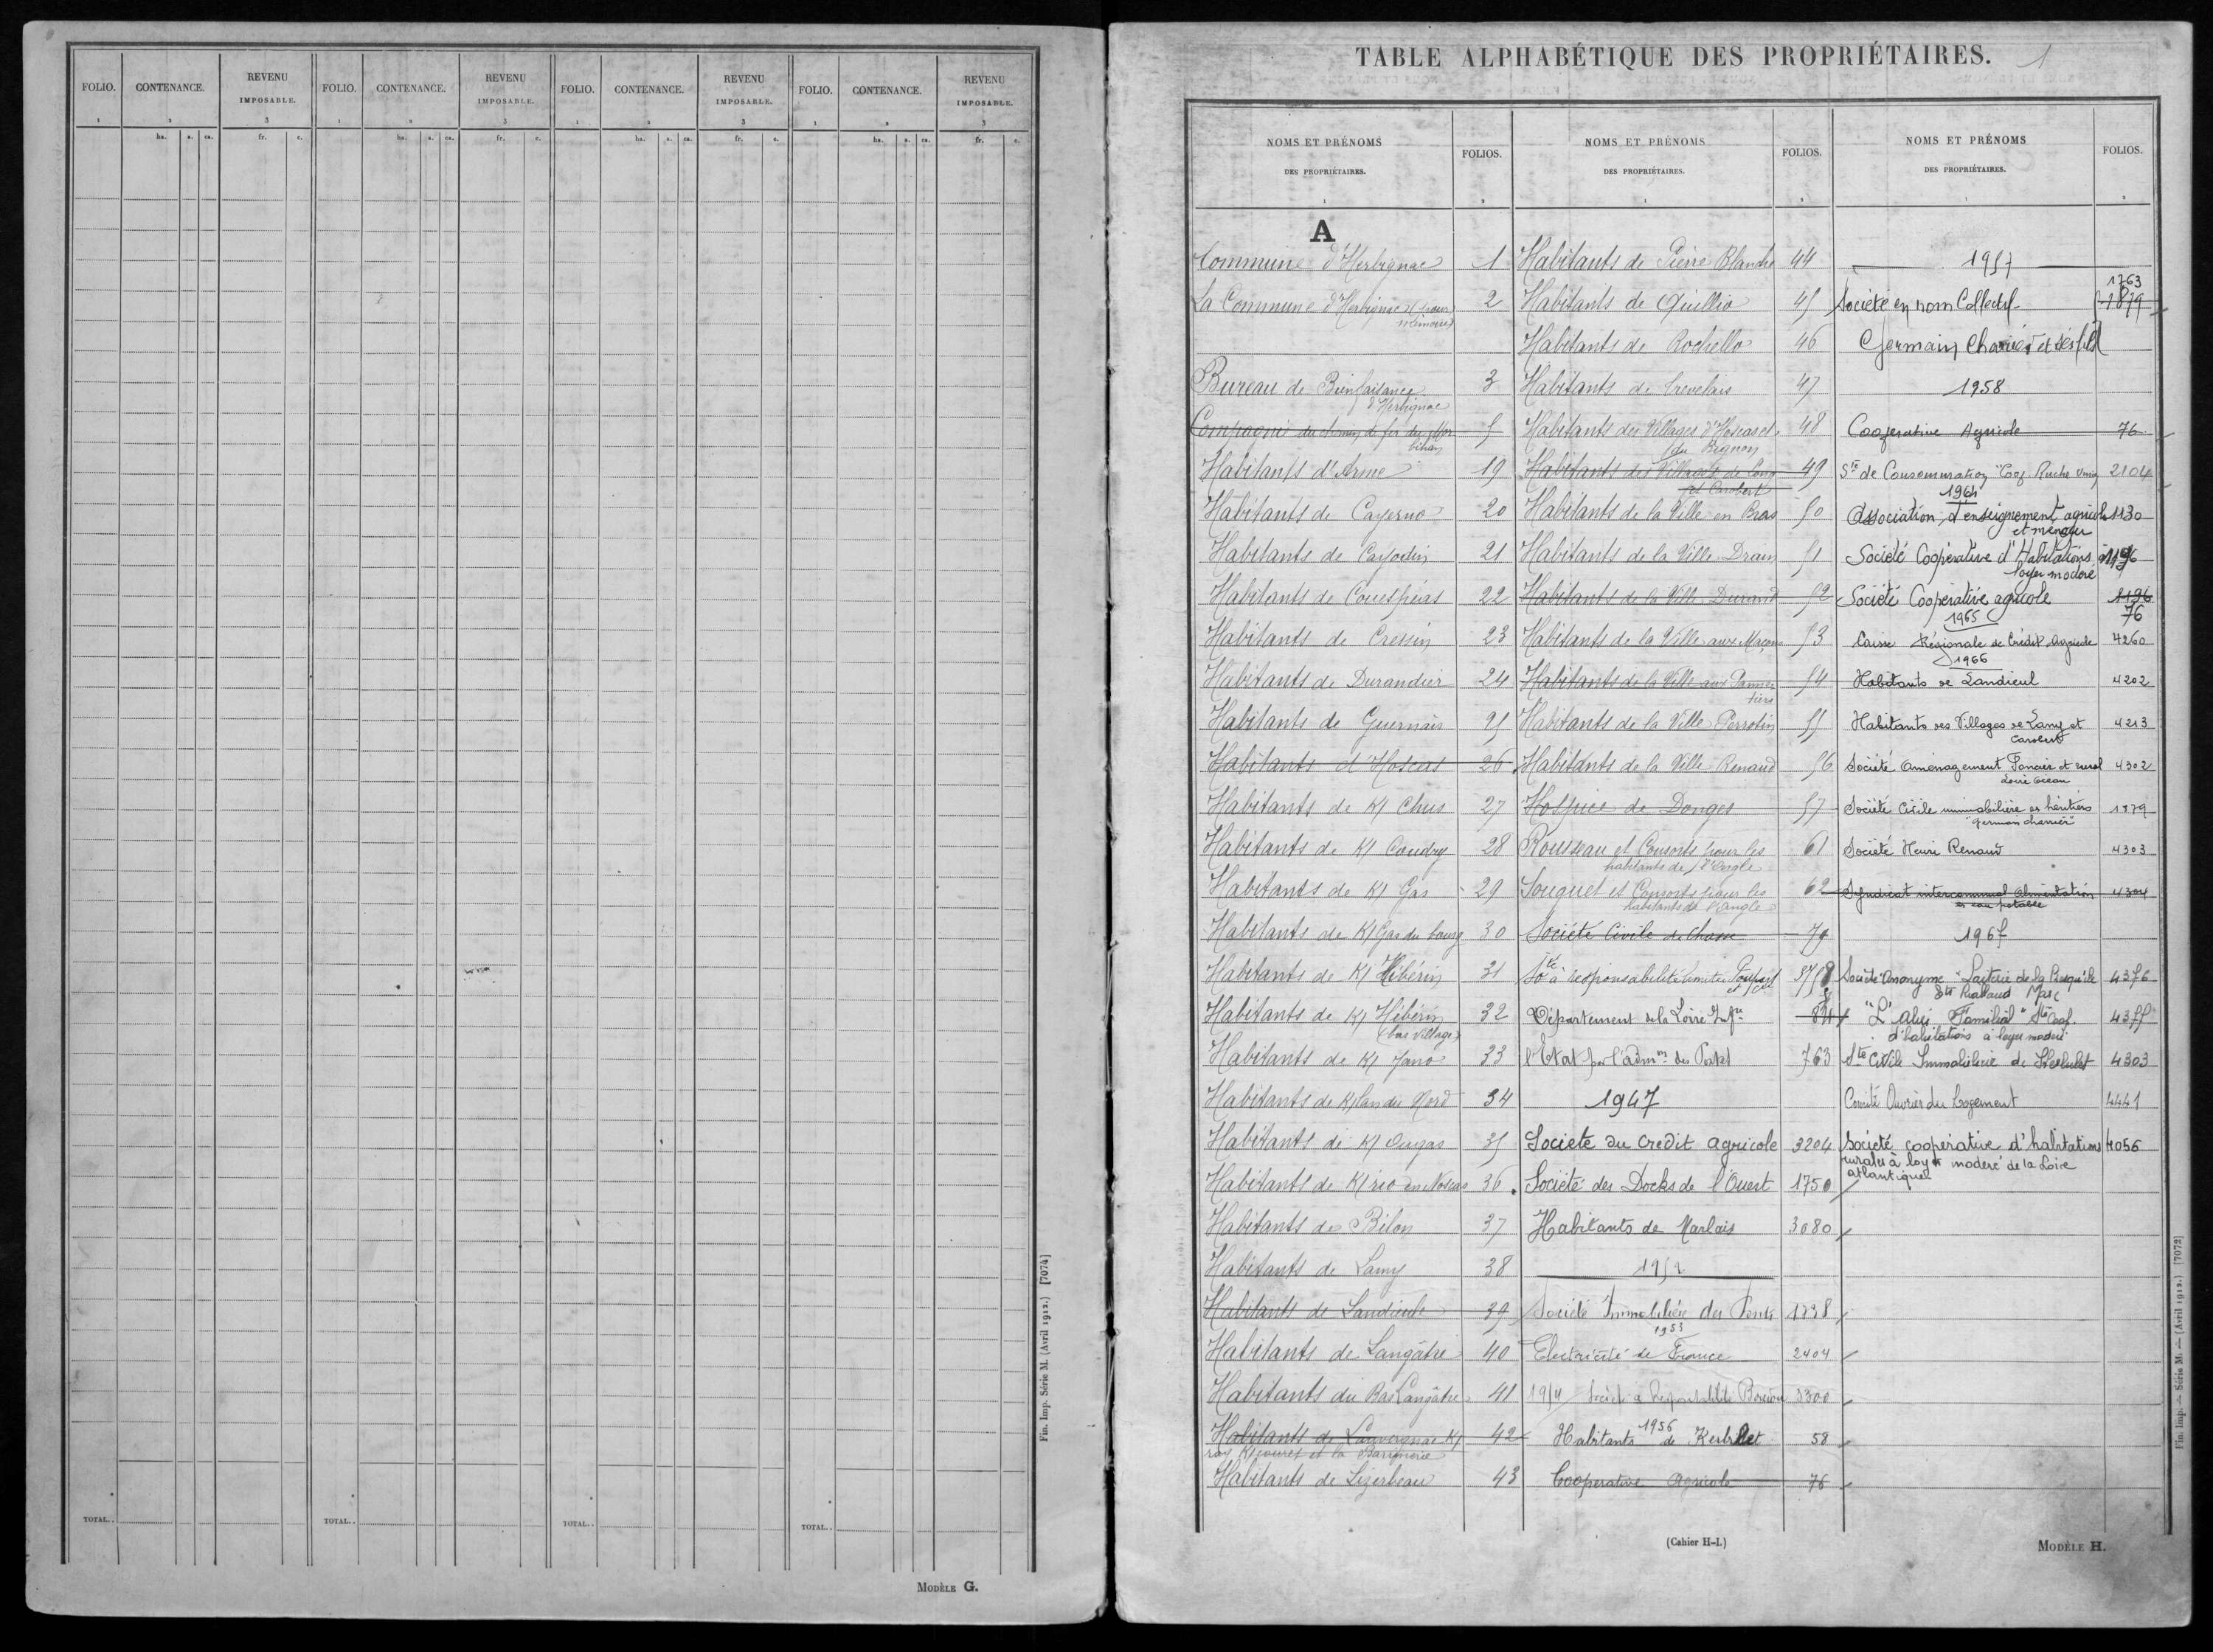 FOLIO. CONTENANCE. REVENU IMPOSABLE. FOLIO. CONTENANCE. REVENU IMPOSABLE. FOLIO. CONTENANCE. REVENU IMPOSABLE. FOLIO. CONTENANCE. REVENU IMPOSABLE.
1 2 3 1 2 3 1 2 3 1 2 3
ha. a. ca. fr. c. ha. a. ca. fr. c. ha. a. ca. fr. c. ha. a. ca. fr. c.
TOTAL.. TOTAL.. TOTAL.. TOTAL..
Fin. Imp. Série M. (Avril 1912.) [7074]
MODÈLE G.
TABLE ALPHABÉTIQUE DES PROPRIÉTAIRES. 1
NOMS ET PRÉNOMS
DES PROPRIÉTAIRES.
FOLIOS.
A
Commune d'Herbignac 1
La Commune d'Herbignac (pour 2
mémoire)
Bureau de Bienfaisance 3
d'Herbignac
Compagnie du chemin de fer du Mor 5
bihan
Habitants d'Arme 19
Habitants de Cayerno 20
Habitants de Cayodin 21
Habitants de Couesperas 22
Habitants de Cressin 23
Habitants de Durandier 24
Habitants de Guernais 25
Habitants d'Hoscas 26
Habitants de K/ Chus 27
Habitants de K/ Coudry 28
Habitants de K/ Gas 29
Habitants de K/ Gas du bourg 30
Habitants de K/ Hébérin 31
Habitants de K/ Hébérin 32
(bas village)
Habitants de K/ Jano 33
Habitants de K/lan du Nord 34
Habitants de K/ Ougas 35
Habitants de K/rio en Noscas 36
Habitants de Bilon 37
Habitants de Lamy 38
Habitants de Landieul 39
Habitants de Langâtre 40
Habitants du Bas Langâtre 41
Habitants de Lauvergnac K/ 42
K/couret et la
Habitants de Lizerbeau 43
NOMS ET PRÉNOMS
DES PROPRIÉTAIRES.
FOLIOS.
Habitants de Pierre Blanche 44
Habitants de Quillio 45
Habitants de Rochello 46
Habitants de Crevelais 47
Habitants des Villages d'Hoscas et 48
du Bignon
Habitants des Villages de Lamy 49
et Carobert
Habitants de la Ville en Bras 50
Habitants de la Ville Drain 51
Habitants de la Ville Durand 52
Habitants de la Ville aux Maçons 53
Habitants de la Ville aux Panne 54
tiers
Habitants de la Ville Perrotin 55
Habitants de la Ville Renaud 56
Hospice de Donges 57
Rousseau et Consorts pour les 61
habitants de l'Angle
Souquet et Consorts pour les 62
habitants de l'Angle
Société Civile de Chasse 74
Sté à responsabilité limitée
Département de la Loire Infre
l'Etat par l'admon des Postes 763
1947
Societé du Credit agricole 3204
Societé des Docks de l'Ouest 1750
Habitants de Marlais 3080
1952
Société Immobilière des Ponts 1738
1953
Electricité de France 2404
1954 Société à Responsabilité 3300
1956
Habitants de Kerbilet 58
Coopérative agricole 76
NOMS ET PRÉNOMS
DES PROPRIÉTAIRES.
FOLIOS.
1957
1763
Société en nom Collectif 1879
Germain Charrier et ses fils
1958
Cooperative Agricole 76
Sté de Consommation "Coop. Ruche Union 2104
1964
Association d'enseignement agricole 1130
et ménager
Société Coopérative d'Habitations à 1196
loyer modéré
Société Coopérative agricole 1196
76
1965
Caisse Régionale de Crédit Agricole 4260
1966
Habitants de Landieul 4202
Habitants des Villages de Lamy et 4213
Carobert
Société Aménagement Foncier et rural 4302
Loire Océan
Société Civile immobilière des héritiers 1879
"Germain Charrier"
Société Henri Renaud 4303
Syndicat intercommunal Alimentation 4304
en eau potable
1967
Société Anonyme "Laiterie de la 4376
Ets Rabaud Marc
"L'abri Familial" Sté Coop. 4377
d'habitations à loyer modéré
Sté Civile Immobilière de 4303
Comité Ouvrier du Logement 4441
Société coopérative d'habitations 4056
rurales à loyer modéré de la Loire
atlantique
(Cahier H-I.)
MODÈLE H.
Fin. Imp. — Série M. — (Avril 1912.) [7072]